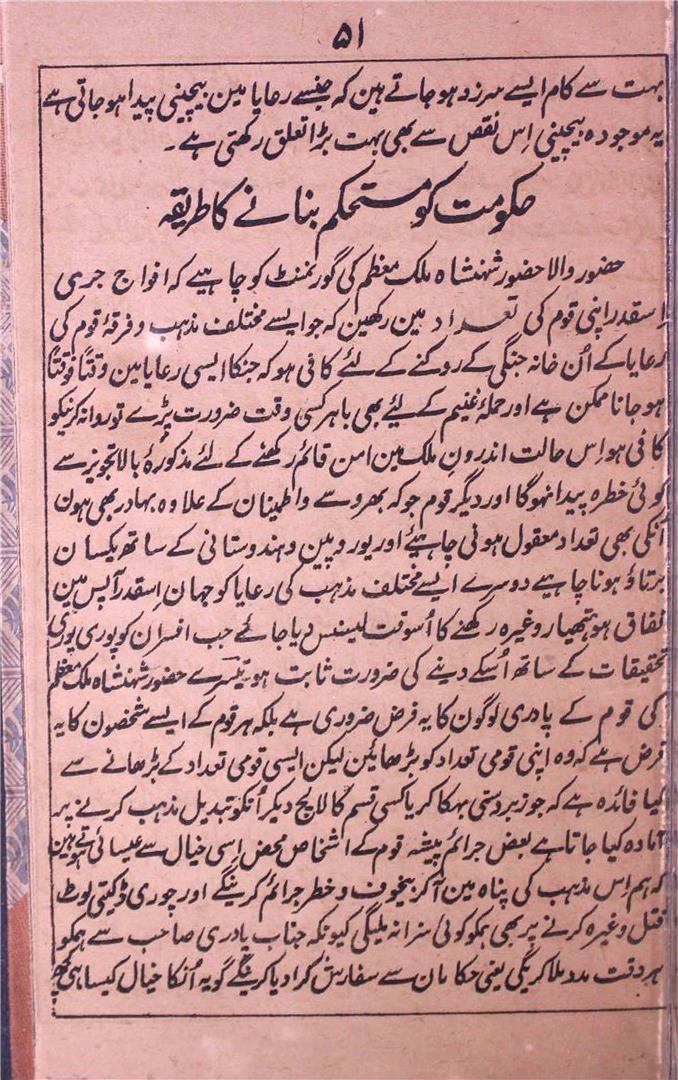 ۵۱
بہت سے کام ایسے سرزد ہو جاتے ہین کہ جنسے رعایا مین بیچینی پیدا ہو جاتی ہے
یہ موجودہ بیچینی اِس نقص سے بھی بہت بڑا تعلق رکھتی ہے۔
حکومت کو مستحکم بنانے کا طریقہ
حضور والا حضور شہنشاہ ملک معظم کی گورنمنٹ کو چاہیے کہ افواج جری
اِسقدر اپنی قوم کی تعداد مین رکھین کہ جو ایسے مختلف مذہب و فرقۂ قوم کی
رعایا کے اُن خانہ جنگی کے روکنے کے لئے کافی ہو کہ جنکا ایسی رعایا مین وقتاً فوقتاً
ہو جانا ممکن ہے اور حملۂ غنیم کے لیٔے بھی باہر کسی وقت ضرورت پڑے تو روانہ کرنیکو
کافی ہو اِس حالت اندرون ملک مین امن قائم رکھنے کے لئے مذکورۂ بالا تجویز سے
کوئی خطرہ پیدا نہوگا اور دیگر قوم جو کہ بھروسے و اطمینان کے علاوہ بہادر بھی ہون
اُنکی بھی تعداد معقول ہونی چاہیٔے اور یوروپین و ہندوستانی کے ساتھ یکسان
برتاؤ ہونا چاہیے دوسرے ایسے مختلف مذہب کی رعایا کو جہان اِسقدر آپس مین
نفاق ہو ہتھیار وغیرہ رکھنے کا اُسوقت لیسنس دیا جائے جب افسران کو پوری پوری
تحقیقات کے ساتھ اُسکے دینے کی ضرورت ثابت ہو۔ تیسرے حضور شہنشاہ ملک معظم
کی قوم کے پادری لوگون کا یہ فرض ضروری ہے بلکہ ہر قوم کے ایسے شخصون کا یہ
فرض ہے کہ وہ اپنی قومی تعداد کو بڑھائین لیکن ایسی قومی تعداد کے بڑھانے سے
کیا فائدہ ہے کہ جو زبردستی بہکا کر یا کسی قسم کا لالچ دیکر اُنکو تبدیل مذہب کرنے پر
آمادہ کیا جاتا ہے بعض جرائم پیشہ قوم کے اشخاص محض اِسی خیال سے عیسائی ہوتے ہین
کہ ہم اِس مذہب کی پناہ مین آکر بیخوف و خطر جرائم کرینگے اور چوری ڈکیتی لوٹ
قتل وغیرہ کرنے پر بھی ہمکو کوئی سزا نہ ملیگی کیونکہ جناب پادری صاحب سے ہمکو
ہر وقت مدد ملا کریگی یعنی حکامان سے سفارش کرا دیا کرینگے گو یہ اُنکا خیال کیسا ہی کچھ